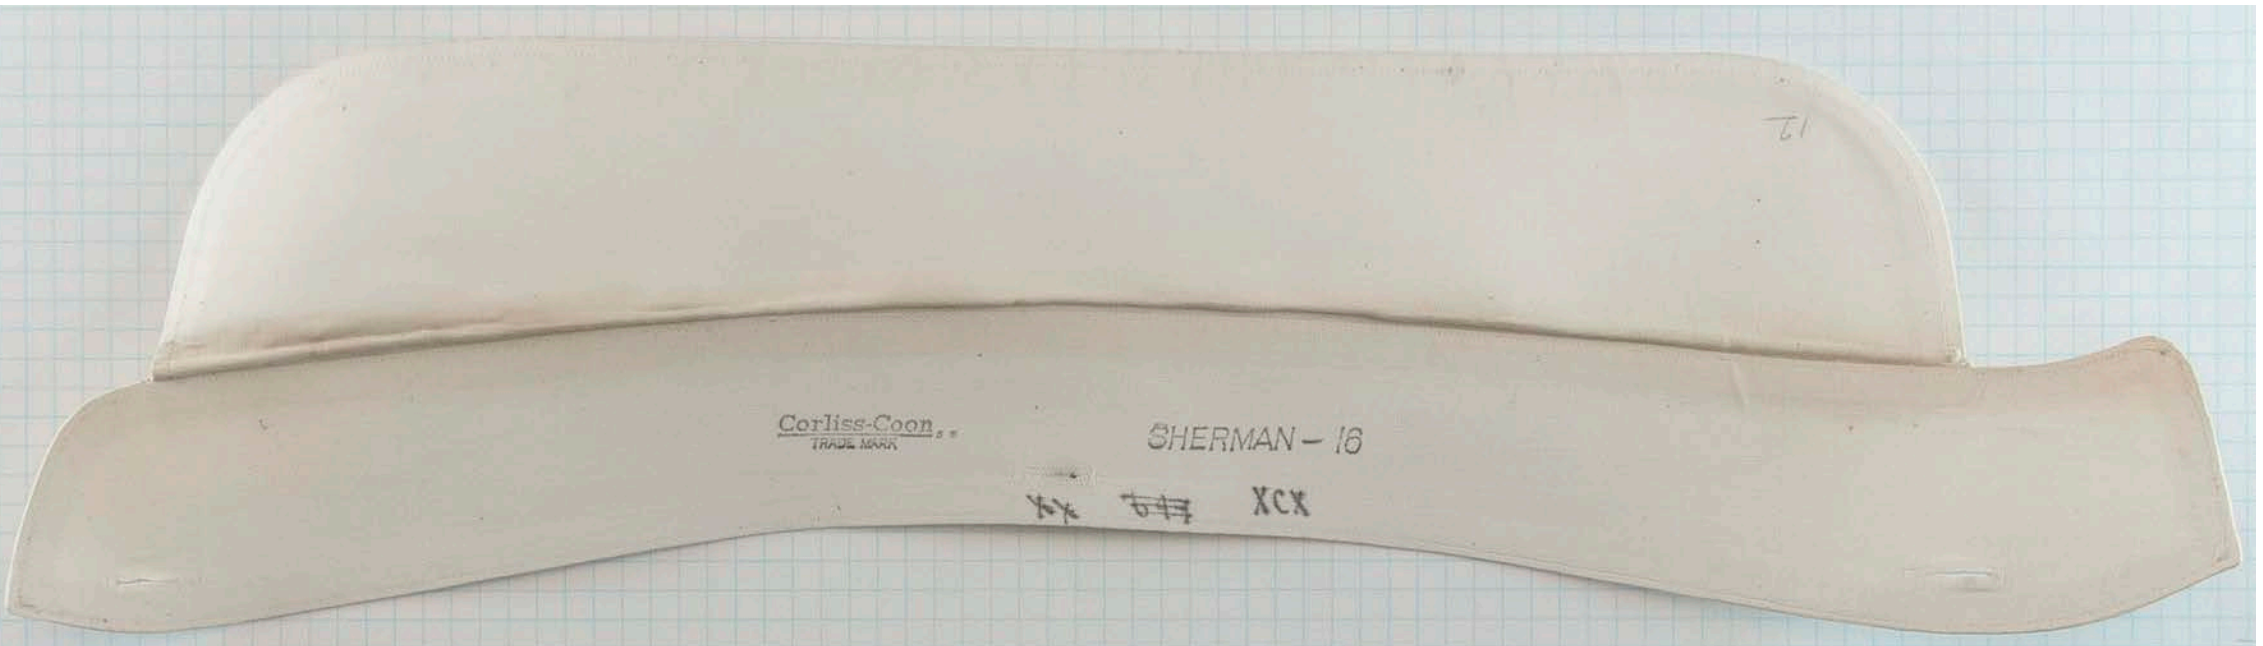 Corliss-Coon
TRADE MARK
SHERMAN - 16
XCX